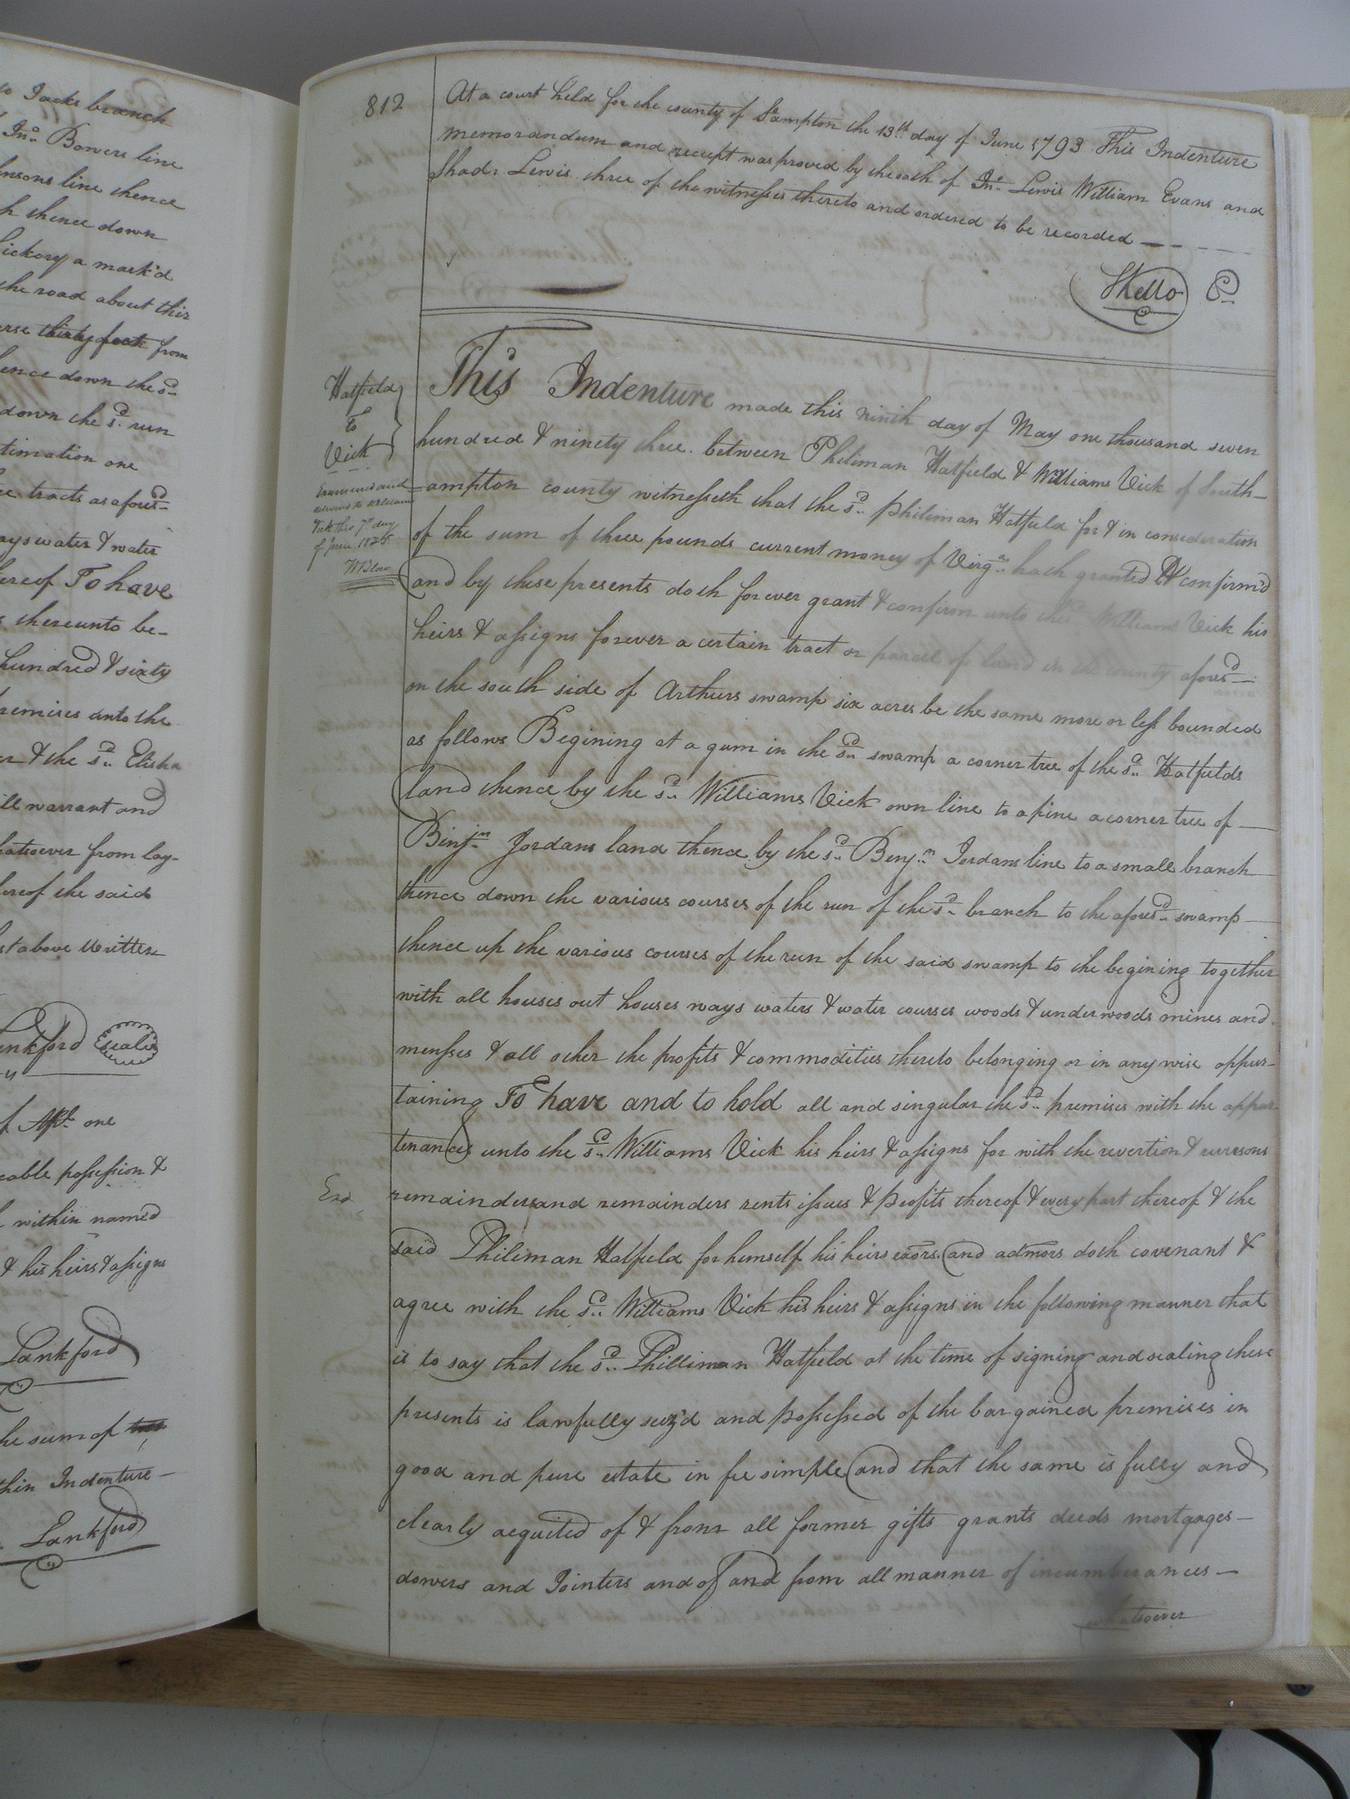 to Jacks branch
Jno. Bowers line
insons line thence
h thence down
hickory a mark'd
the road about this
erse thirty feet from
ence down the sd.
down the sd. run
timation one
ce tracts as aforesd.
ays water & water
hereof To have
s thereunto be-
hundred & sixty
remises unto the
er & the sd. Elisha
ill warrant and
hatsoever from lay-
hereof the said
st above written
Lankford seale
of one
ceable possession &
within named
& his heirs & assigns
Lankford
he sum of
thin Indenture
Lankford
812
At a court held for the county of Sampton the 13th day of June 1793 This Indenture
memorandum and receipt was proved by the oath of Jno. Lewis William Evans and
Shad. Lewis three of the witnesses thereto and ordered to be recorded
Skello C
Hatfield
To
Vick
Examined and
Vick this 7th day
of June 1825
This Indenture made this ninth day of May one thousand seven
hundred & ninety three. between Philiman Hatfield & Williams Vick of South-
=ampton county witnesseth that the sd. philiman Hatfield for & in consideration
of the sum of three pounds current money of Virga. hath granted & confirm'd
and by these presents doth forever grant & confirm unto the sd. Williams Vick his
heirs & assigns forever a certain tract or parcel of land in the county aforesd.
on the south side of Arthurs swamp six acres be the same more or less bounded
as follows Begining at a gum in the sd. swamp a corner tree of the sd. Hatfields
land thence by the sd. Williams Vick own line to a pine a corner tree of
Binjmn. Jordans land thence by the sd. Benjn. Jordans line to a small branch
thence down the various courses of the run of the sd. branch to the aforesd. swamp
thence up the various courses of the run of the said swamp to the begining together
with all houses out houses ways waters & water courses woods & underwoods mines and
menses & all other the profits & commodities thereto belonging or in any wise apper-
taining To have and to hold all and singular the sd. premises with the appur
tenances unto the sd. Williams Vick his heirs & assigns for with the revertion &
remainders and remainders rents issues & profits thereof & every part thereof & the
said Philiman Hatfield for himself his heirs exors. and admors doth covenant &
agree with the sd. Williams Vick his heirs & assigns in the following manner that
is to say that the sd. Philliman Hatfield at the time of signing and sealing these
presents is lawfully seiz'd and possessed of the bargained premises in
good and pure estate in fee simple and that the same is fully and
clearly acquited of & from all former gifts grants deeds mortgages
dowers and Jointers and of and from all manner of incumberances
whatsoever